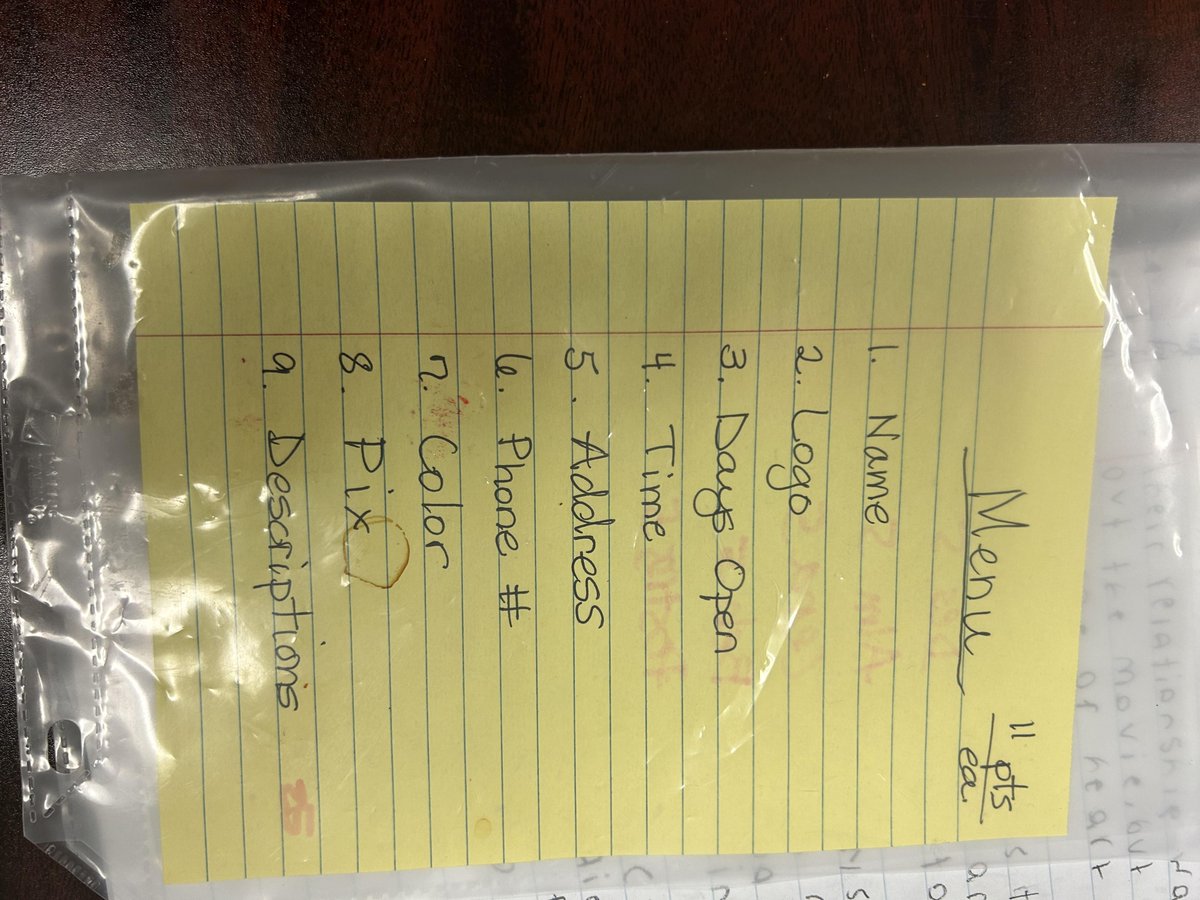 Menu
11 pts
ea.
1. Name
2. Logo
3. Days Open
4. Time
5. Address
6. Phone #
7. Color
8. Pix
9. Descriptions
their relationship
out the movie, but
of heart